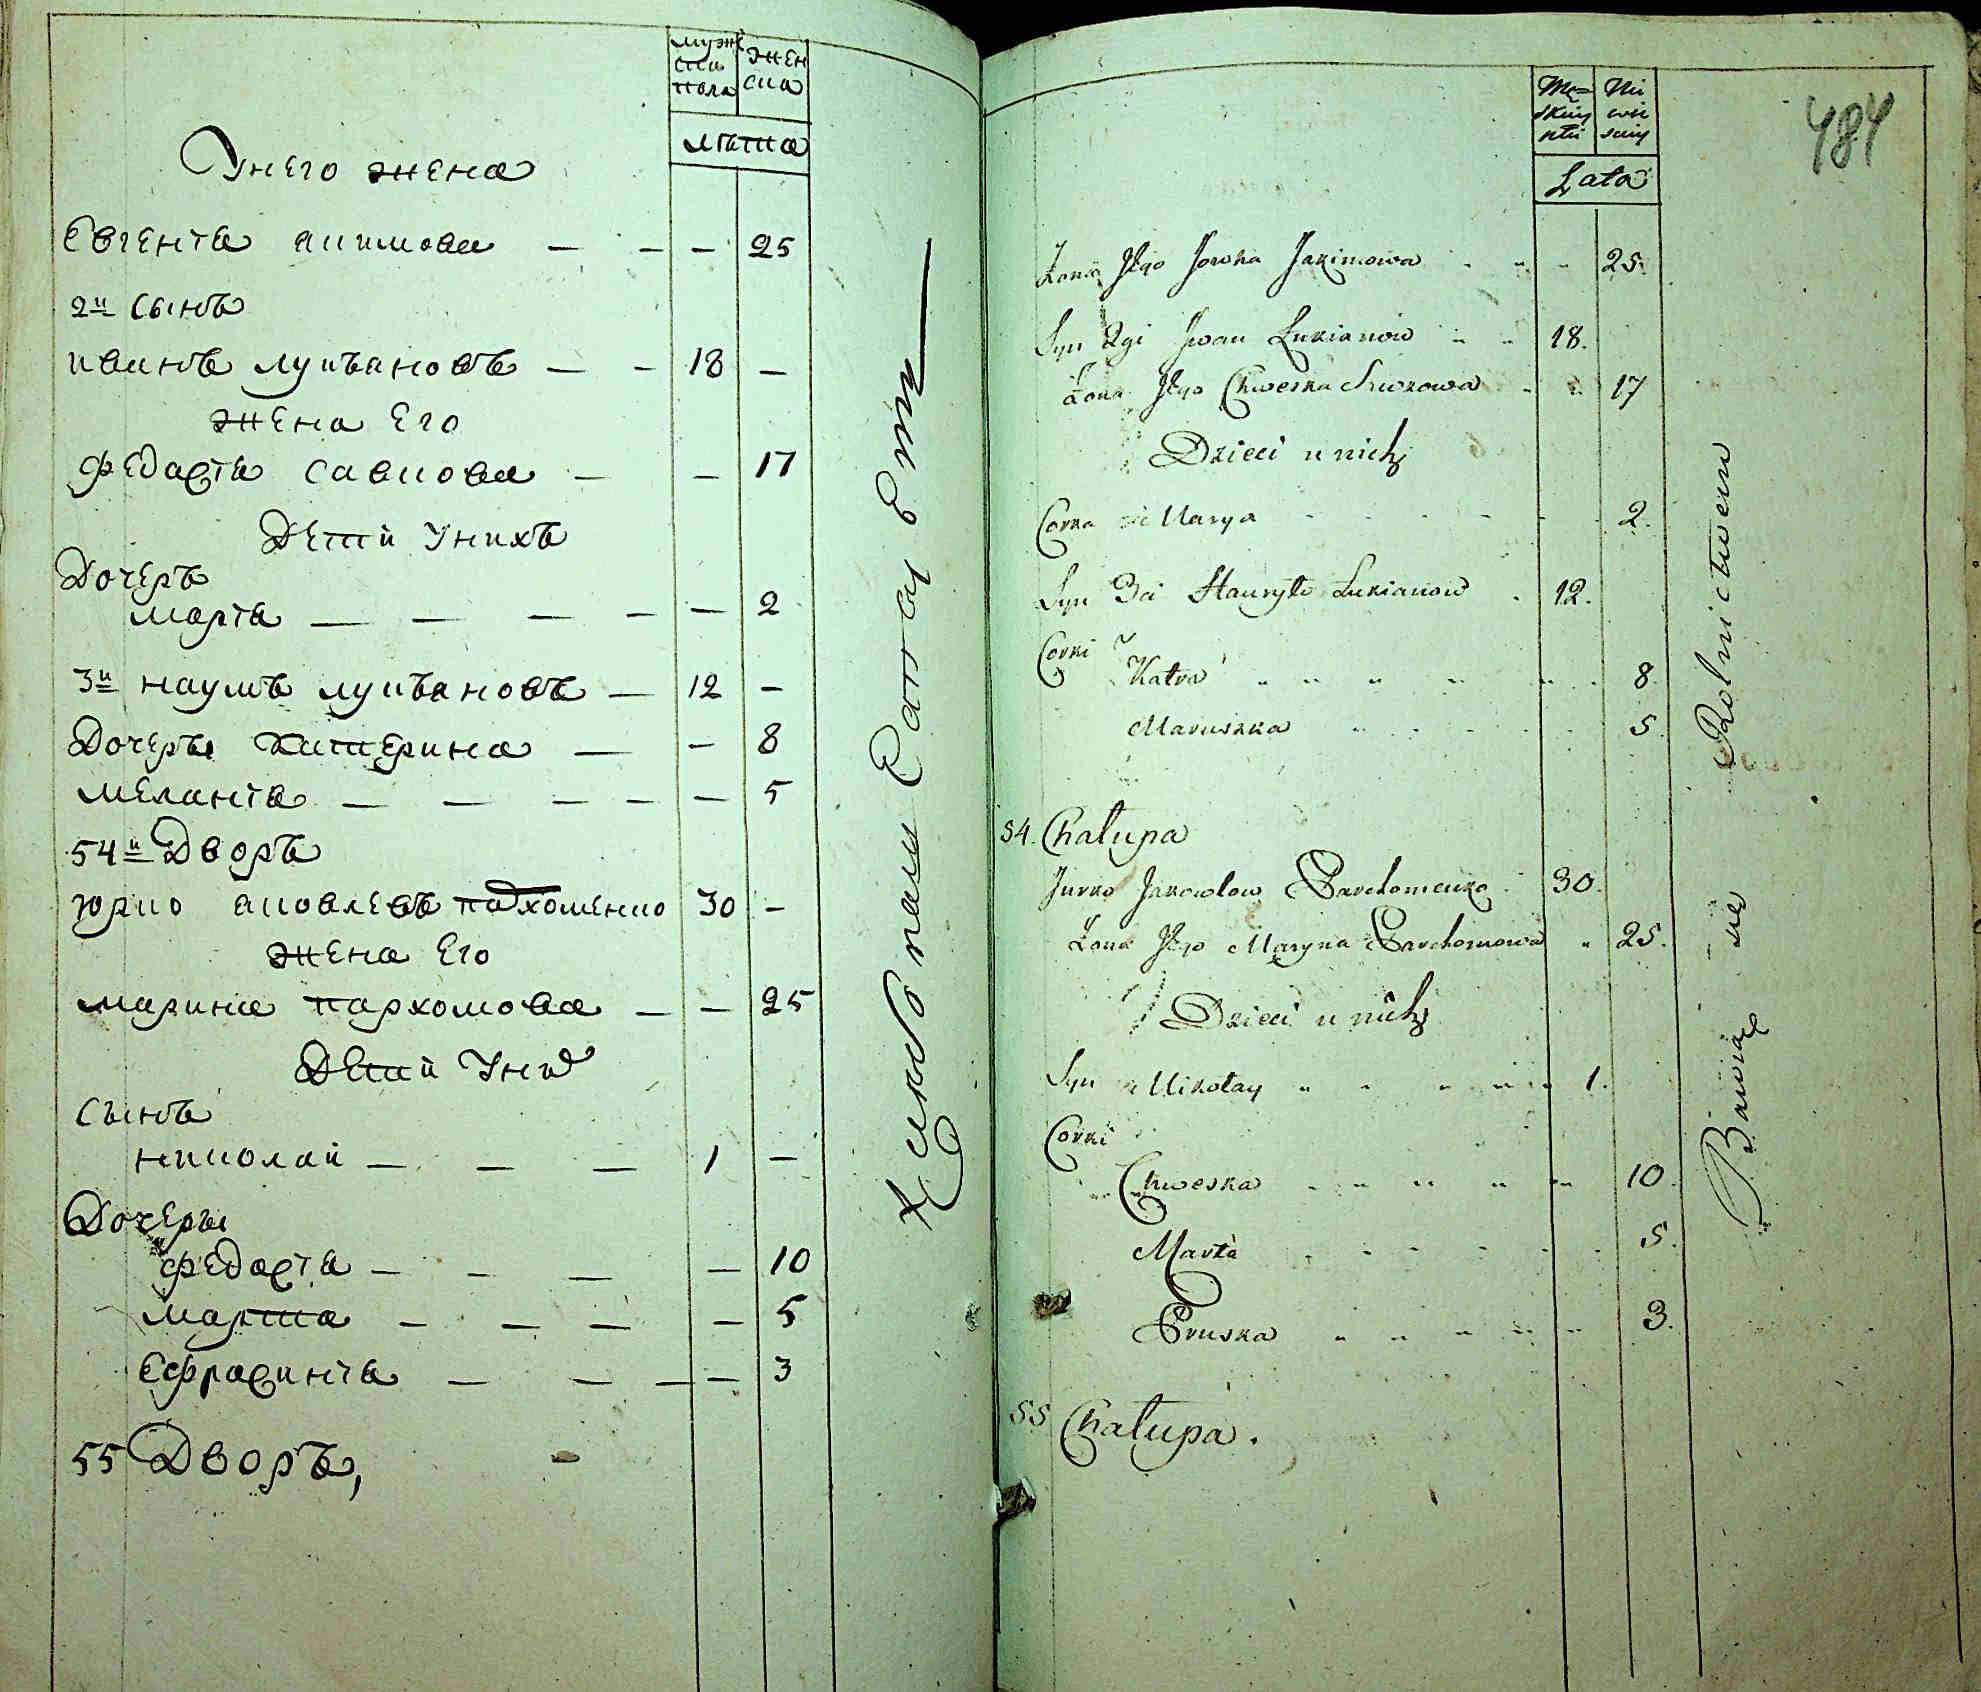 мужска пола
женска
лѣта
У него жена
Евгенiя акимова — — — 25
2й Сынъ
иванъ лукьяновъ — — 18 —
жена Его
Федосiя савкова — — 17
Дети У нихъ
Дочеръ
марiя — — — — — 2
3й наумъ лукьяновъ — 12 —
Дочеры Катерина — — 8
меланiя — — — — — 5
54й Дворъ
юрко яковлевъ пархоменко 30 —
жена Его
марина пархомова — — 25
Дети У них
Сынъ
николай — — — 1 —
Дочеры
федосiя — — — — 10
марта — — — — 5
Ефросинiя — — — — 3
55 Дворъ,
484
Lata
Żona Jego Jowha Jakimowa 25.
Syn 2gi Jwan Łukianow 18.
Żona Jego Chweska 17
Dzieci u nich
Corka Marya 2.
Syn 3ci Hauryło Łukianow 12.
Corki
Katra 8.
Maruszka 5.
54. Chałupa
Jurko Jakowlow Parchomenko 30.
Żona Jego Maryna Parchomowa 25.
Dzieci u nich
Syn Mikołay 1.
Corki
Chweska 10.
Marta 5.
Pruska 3.
55 Chałupa.
Bawią się Rolnictwem